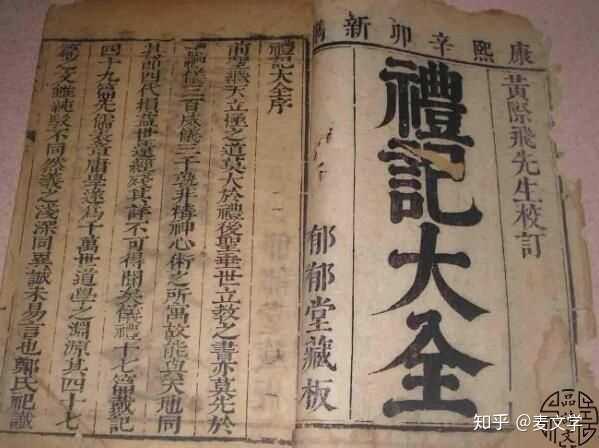 康熙辛卯新
黃際飛先生校訂
禮記大全
郁郁堂藏板
禮記大全序
前聖繼天立極之道莫大於禮後聖垂世立教之書亦莫先於
禮儀三百威儀三千孰非精神心術之所寓故能與天地同
其節四代損益世遠經殘其詳不可得聞矣儀禮十七篇戴記
四十九篇先儒表章庸學遂爲千萬世道學之淵源其四十七
篇之文雖純駁不同然義之淺深同異誠未易言也鄭氏祖讖
知乎 @麦文学